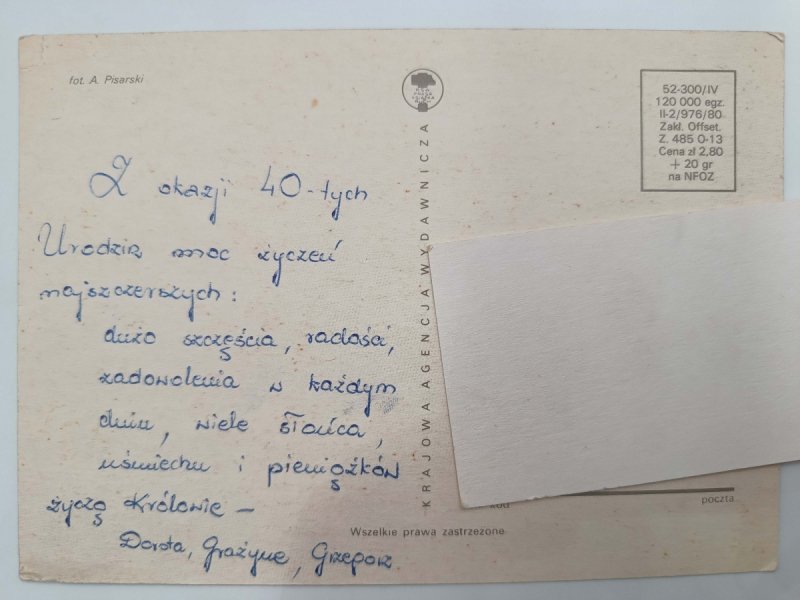 fot. A. Pisarski
52-300/IV
120 000 egz.
II-2/976/80
Zakł. Offset.
Z. 485 O-13
Cena zł 2,80
+ 20 gr
na NFOZ
Z okazji 40-tych
Urodzin moc życzeń
najszczerszych:
dużo szczęścia, radości,
zadowolenia w każdym
dniu, wiele słońca,
uśmiechu i pieniążków
życzą Królowie –
Dorota, Grażyna, Grzegorz.
KRAJOWA AGENCJA WYDAWNICZA
poczta
Wszelkie prawa zastrzeżone